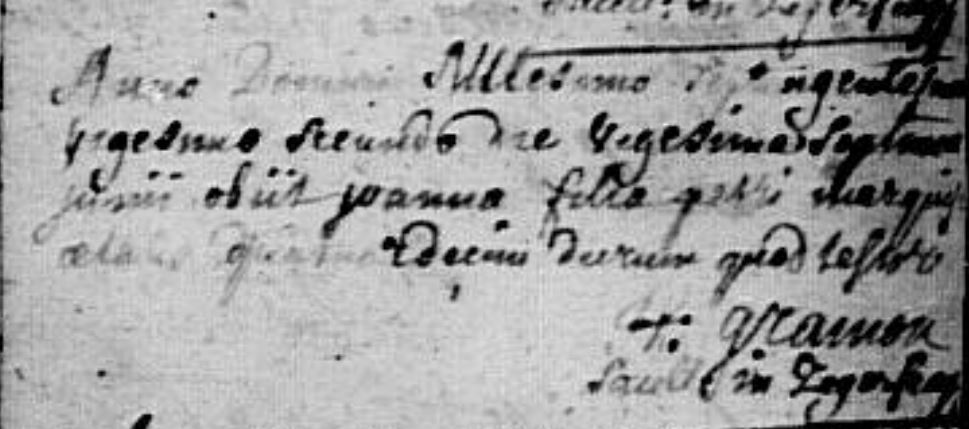 in
Anno Domini Millesimo septingentesimo
vigesimo secundo die vigesima septima
junii obiit joanna filia petri marquis
ætatis quatuordecim dierum quod testor
gramon
in